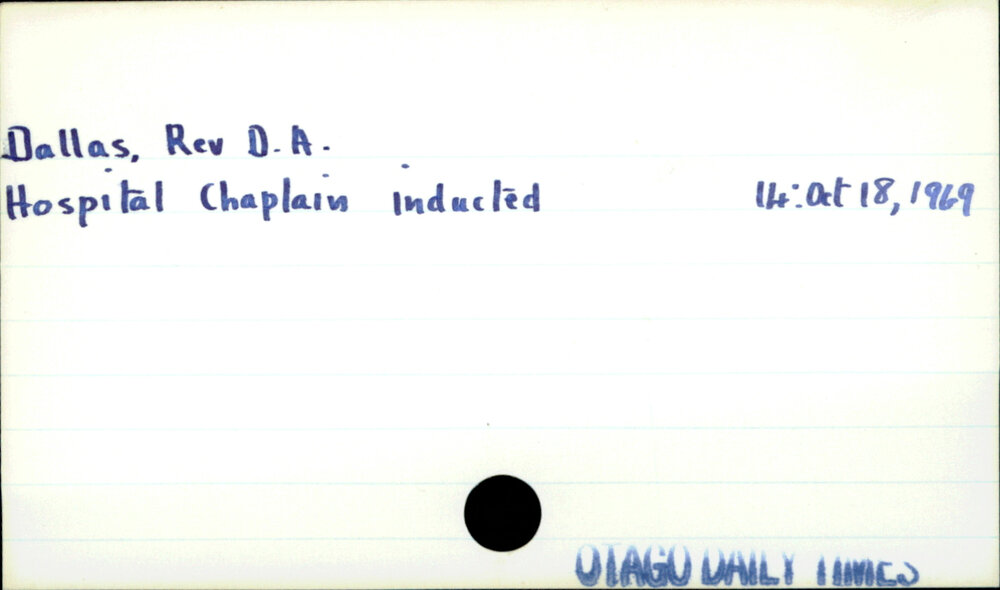 Dallas, Rev D.A.
Hospital Chaplain inducted 14: Oct 18, 1969
OTAGO DAILY TIMES